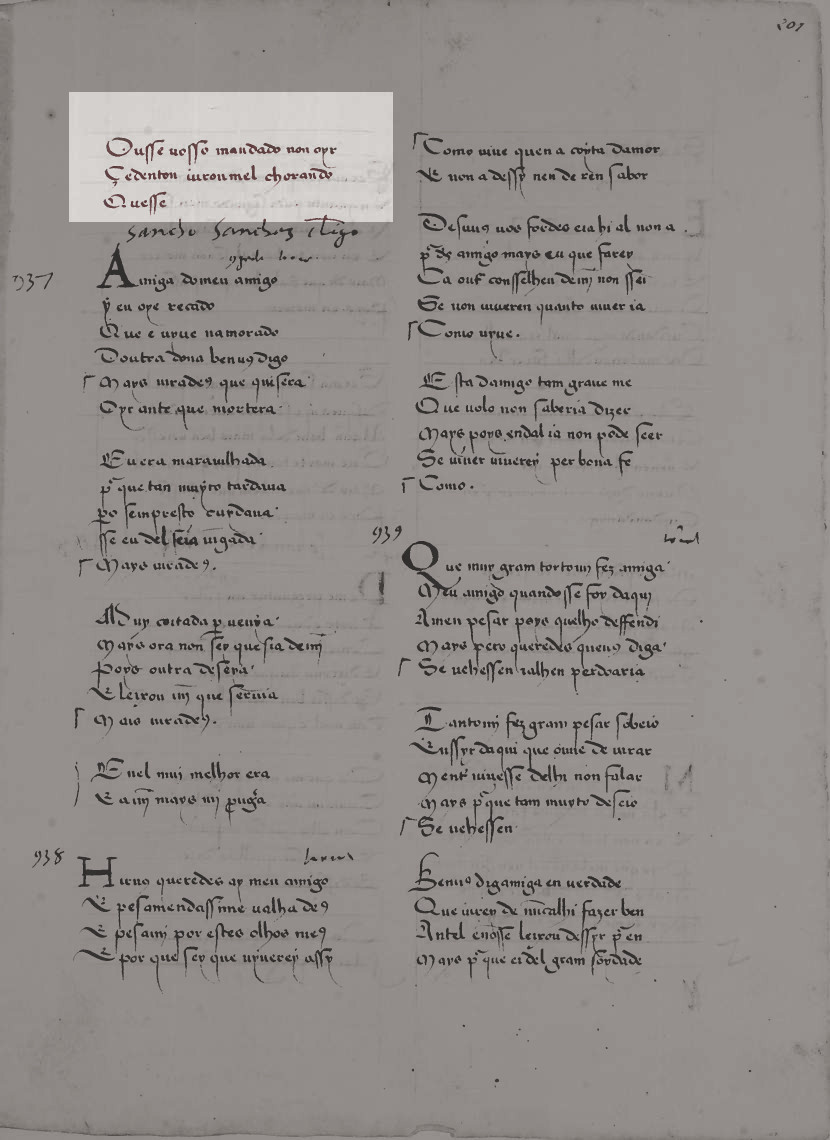 201
Ousse uosso mandado non oyr
Çedenton iuroumel chorando
Quesse
Sancho Sanchez
937
Amiga do meu amigo
Que e uyue namorado
Doutra dona benuꝯ digo
Mays uiradeꝯ que quisera
Oyr ante que mortera
Eu era marauilhada
p̃ que tan muyto tardaua
po sempresto cuydaua
sse eu del seia uĩgada
Mays uiradeꝯ.
Mays ora non sey que sia de mĩ
Poys outra
E leixou mĩ que
Mais uiradeꝯ.
Enel mui melhor era
938
Huꝯ queredes ay meu amigo
E pesamendassime ualha deꝯ
E pesami por estes olhos meꝯ
E por que sey que uyuerey assy
Como uiue quen a coyta damor
E non a dessy nen de ren sabor
Desunꝯ uos fordes eia hi al non a
p̃ dꝯ amigo mays eu que farey
Ca outº consselheu de mĩ non ssei
Se non uiueren quanto uiuer ia
Como uyue.
Esta damigo tam graue me
Que uolo non saberia dizer
Mays poys endal ia non pode seer
Se uiuer uiuerey per bona fe
Como.
939
Que muy gram torto mj fez amiga
Meu amigo quandosse foy daquj
A meu pesar poys quelho deffendi
Mays pero queredes quenꝯ diga
Se uehessen ialhen perdoaria
Tantomj fez gram pesar
Enssyr daqui que ouue de uirar
Mentº uiuesse deltu non falar
Mays p̃que tam muyto
Se uehessen
Benuꝯ digamiga en uerdade
Que iurey de nũcalhi fazer ben
Antel enosse leixou dessyr p̃ en
Mays p̃ que ei del gram soydade